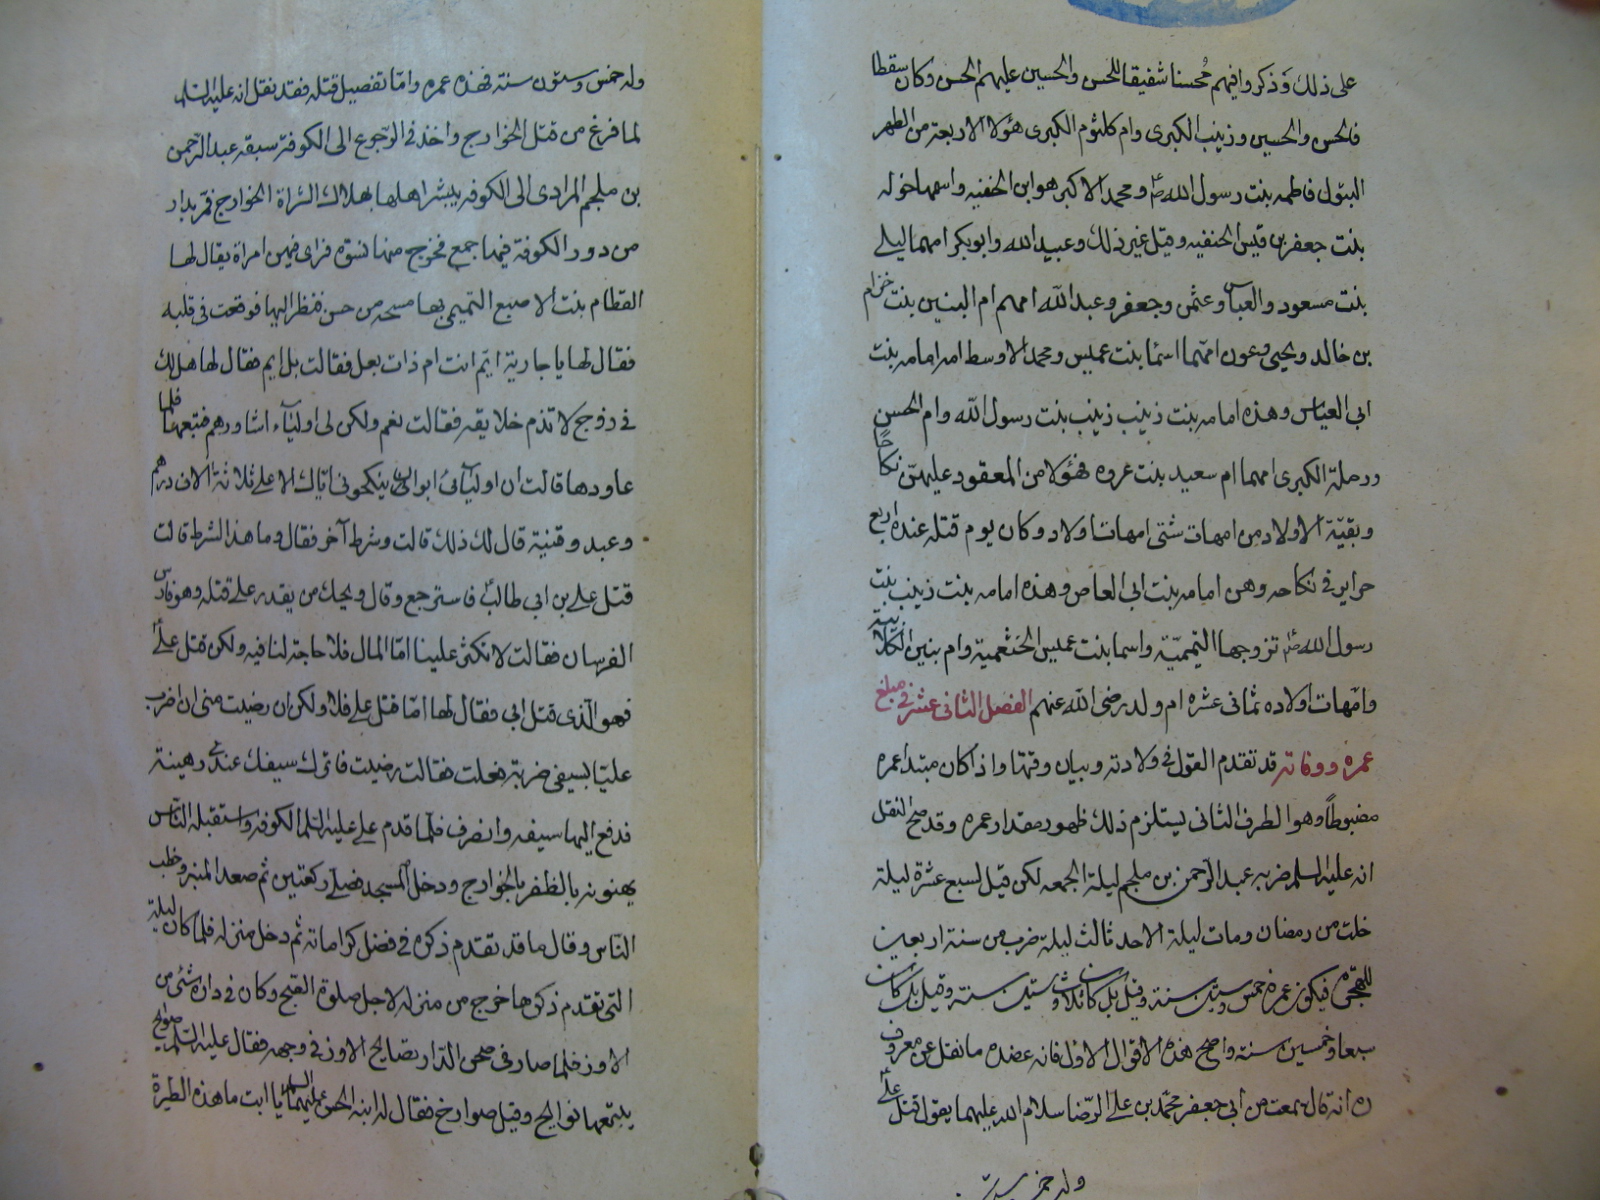 على ذلك وذكروا فيهم محسنا شقيقا للحسن والحسين عليهم الحسن وكان سقطا
فالحسن والحسين وزينب الكبرى وام كلثوم الكبرى هؤلا الاربعة من الطهر
البتول فاطمه بنت رسول الله ص ومحمد الاكبر هو ابن الحنفيه واسمها خوله
بنت جعفر بن قيس الحنفيه وقيل غير ذلك وعبيد الله وابو بكر امهما ليلى
بنت مسعود والعباس وعثمن وجعفر وعبد الله امهم ام البنين بنت خزام
بن خالد ويحيى وعون امهما اسما بنت عميس ومحمد الاوسط امه امامه بنت
ابى العباس وهذه امامه بنت زينب زينب بنت رسول الله وام الحسن
ورملة الكبرى امهما ام سعيد بنت عروه فهؤلا من المعقود عليهن نكاحا
وبقية الاولاد من امهات شتى امهات اولاد وكان يوم قتله عنده اربع
حراير فى نكاحه وهن امامه بنت ابى العاص وهذه امامه بنت زينب بنت
رسول الله ص تزوجها التميمية واسما بنت عميس الخثعمية وام بنين الكلابية
وامهات اولاده ثمانى عشره ام ولد رضى الله عنهم الفصل الثانى عشر فى مبلغ
عمره ووفاته قد تقدم القول فى ولادته وبيان وقتها واذا كان مبتدا عمره
مضبوطا وهو الطرف الثانى يستلزم ذلك ظهور مقدار عمره وقد صح النقل
انه عليه السلم ضربه عبد الرحمن بن ملجم ليلة الجمعه لكن قيل لسبع عشرة ليلة
خلت من رمضان ومات ليلة الاحد ثالث ليلة ضرب من سنة اربعين
للهجرة فيكون عمره خمس وستين سنة وقيل بل كان ثلاث وستين سنة وقيل بل كان
سبعا وخمسين سنة واصح هذه الاقوال الاول فانه عضده ما نقل عن معروف
ره انه قال سمعت من ابى جعفر محمد بن على الرضا سلام الله عليهما يقول قتل على
وله خمس وستون
وله خمس وستون سنة فهذه عمره واما تفصيل قتله فقد نقل انه عليه السلم
لما فرغ من قتل الخوارج واخذ فى الرجوع الى الكوفة سبقه عبد الرحمن
بن ملجم المرادى الى الكوفه يبشر اهلها بهلاك الشراة الخوارج فمر بدار
من دور الكوفة فيها جمع فخرج منها نسوة فراى فيهن امراة يقال لها
القطام بنت الاصبغ التميمى بها مسحه من حسن فنظر اليها فوقعت فى قلبه
فقال لها يا جارية ايم انت ام ذات بعل فقالت بل ايم فقال لها هل لك
فى زوج لا تذم خلايقه فقالت نعم ولكن لى اولياء اشاورهم فتبعها فلما
عاودها قالت ان اوليائى ابوا ان ينكحونى اياك الا على ثلاثة الاف درهم
وعبد وقنية قال لك ذلك قالت وشرط آخر فقال وما هذا الشرط قالت
قتل على بن ابى طالب فاسترجع وقال ويحك من يقدر على قتله وهو فارس
الفرسان فقالت لا تكثر علينا اما المال فلا حاجة لنا فيه ولكن قتل على
فهو الذى قتل ابى فقال لها اما قتل على فلا ولكن ان رضيت منى ان اضرب
عليا بسيفى ضربة فعلت فقالت رضيت فاترك سيفك عندى رهينة
فدفع اليها سيفه وانصرف فلما قدم على عليه السلم الكوفه واستقبله الناس
يهنونه بالظفر بالخوارج ودخل المسجد فصلى ركعتين ثم صعد المنبر وخطب
الناس وقال ما قد تقدم ذكره فى فضل كراماته ثم دخل منزله فلما كان ليلة
التى تقدم ذكرها خرج من منزله لاجل صلوة الصبح وكان فى داره شئ من
الاوز فلما صار فى صحن الدار تصايح الاوز فى وجهه فقال عليه السلم صوايح
يتبعها نوايح وقيل صوارخ فقال له ابنه الحسن عليهما السلم يا ابت ما هذه الطيرة